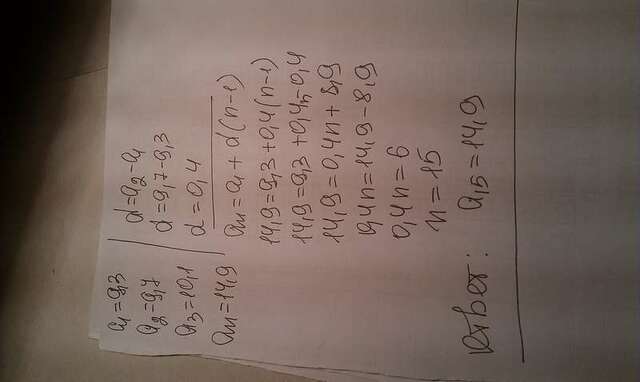 a₁=9,3
a₂=9,7
a₃=10,1
aₙ=14,9
d=a₂-a₁
d=9,7-9,3
d=0,4
aₙ=a₁+d(n-1)
14,9=9,3+0,4(n-1)
14,9=9,3+0,4n-0,4
14,9=0,4n+8,9
0,4n=14,9-8,9
0,4n=6
n=15
Ответ: a₁₅=14,9